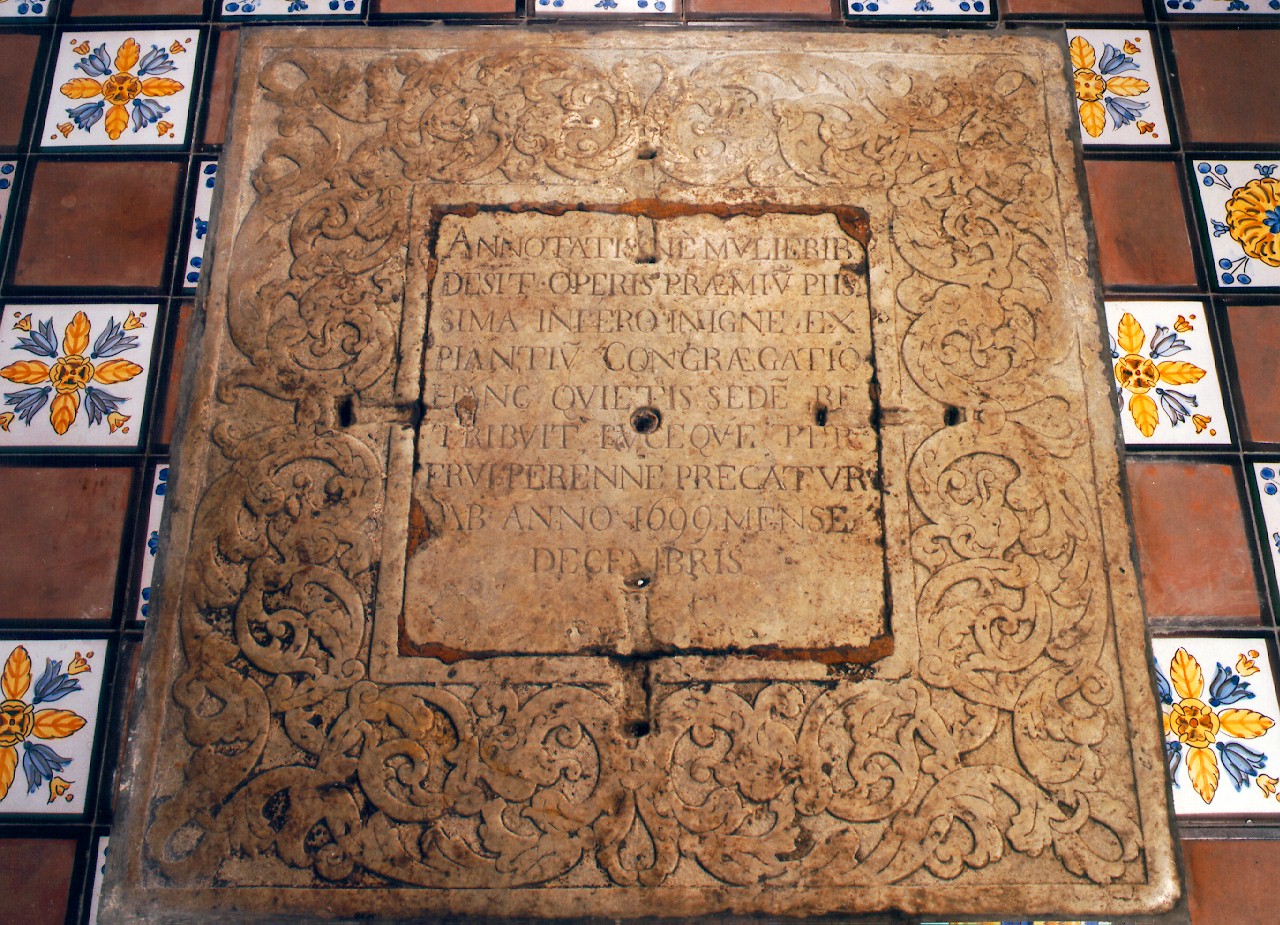 ANNOTATIS NE MVLIERIB
DESIT OPERIS PRÆMIṼ PIIS
SIMA INFERO IN IGNE EX
PIANTIṼ CONGRÆGATIO
HANC QVIETIS SEDẼ RE
TRIBVIT LVCEQVE PER
FRVI PERENNE PRECATVR
AB ANNO 1699 MENSE
DECEMBRIS